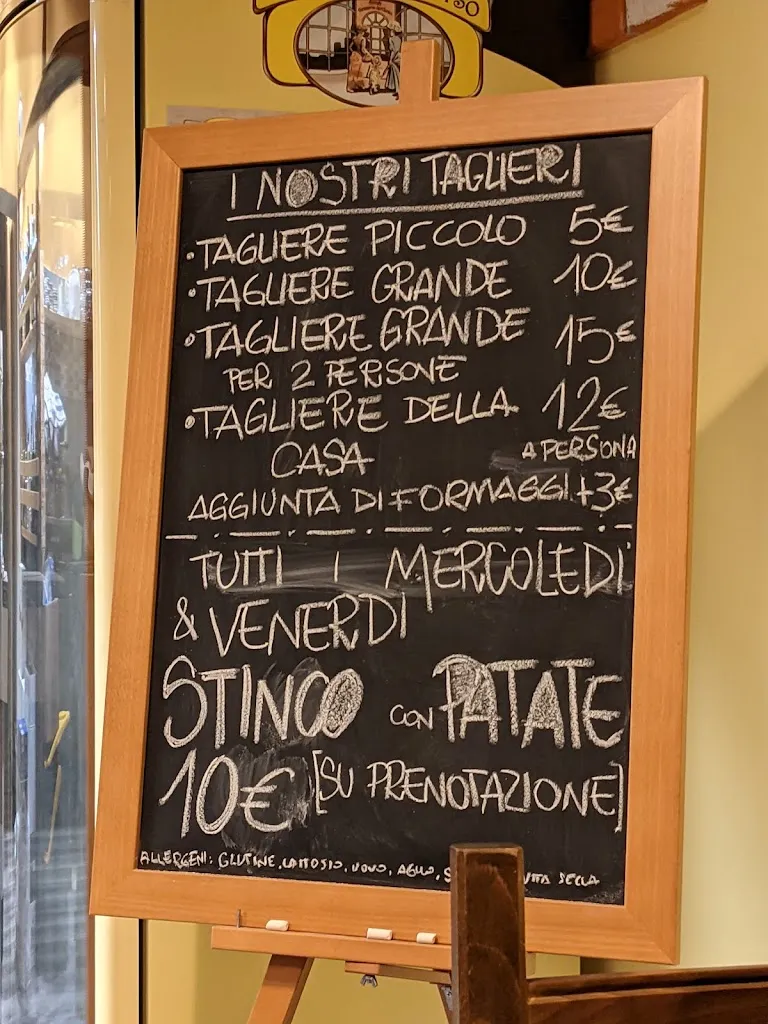 I NOSTRI TAGLIERI
• TAGLIERE PICCOLO 5€
• TAGLIERE GRANDE 10€
• TAGLIERE GRANDE 15€
PER 2 PERSONE
• TAGLIERE DELLA 12€
CASA A PERSONA
AGGIUNTA DI FORMAGGI +3€
TUTTI I MERCOLEDI'
& VENERDI
STINCO CON PATATE
10€ [SU PRENOTAZIONE]
ALLERGENI: GLUTINE, LATTOSIO, UOVO, AGLIO, SECCA